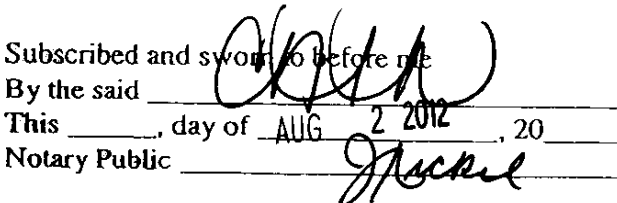 Subscribed and sworn to before me
By the said
This ______, day of AUG 2 2012, 20____
Notary Public